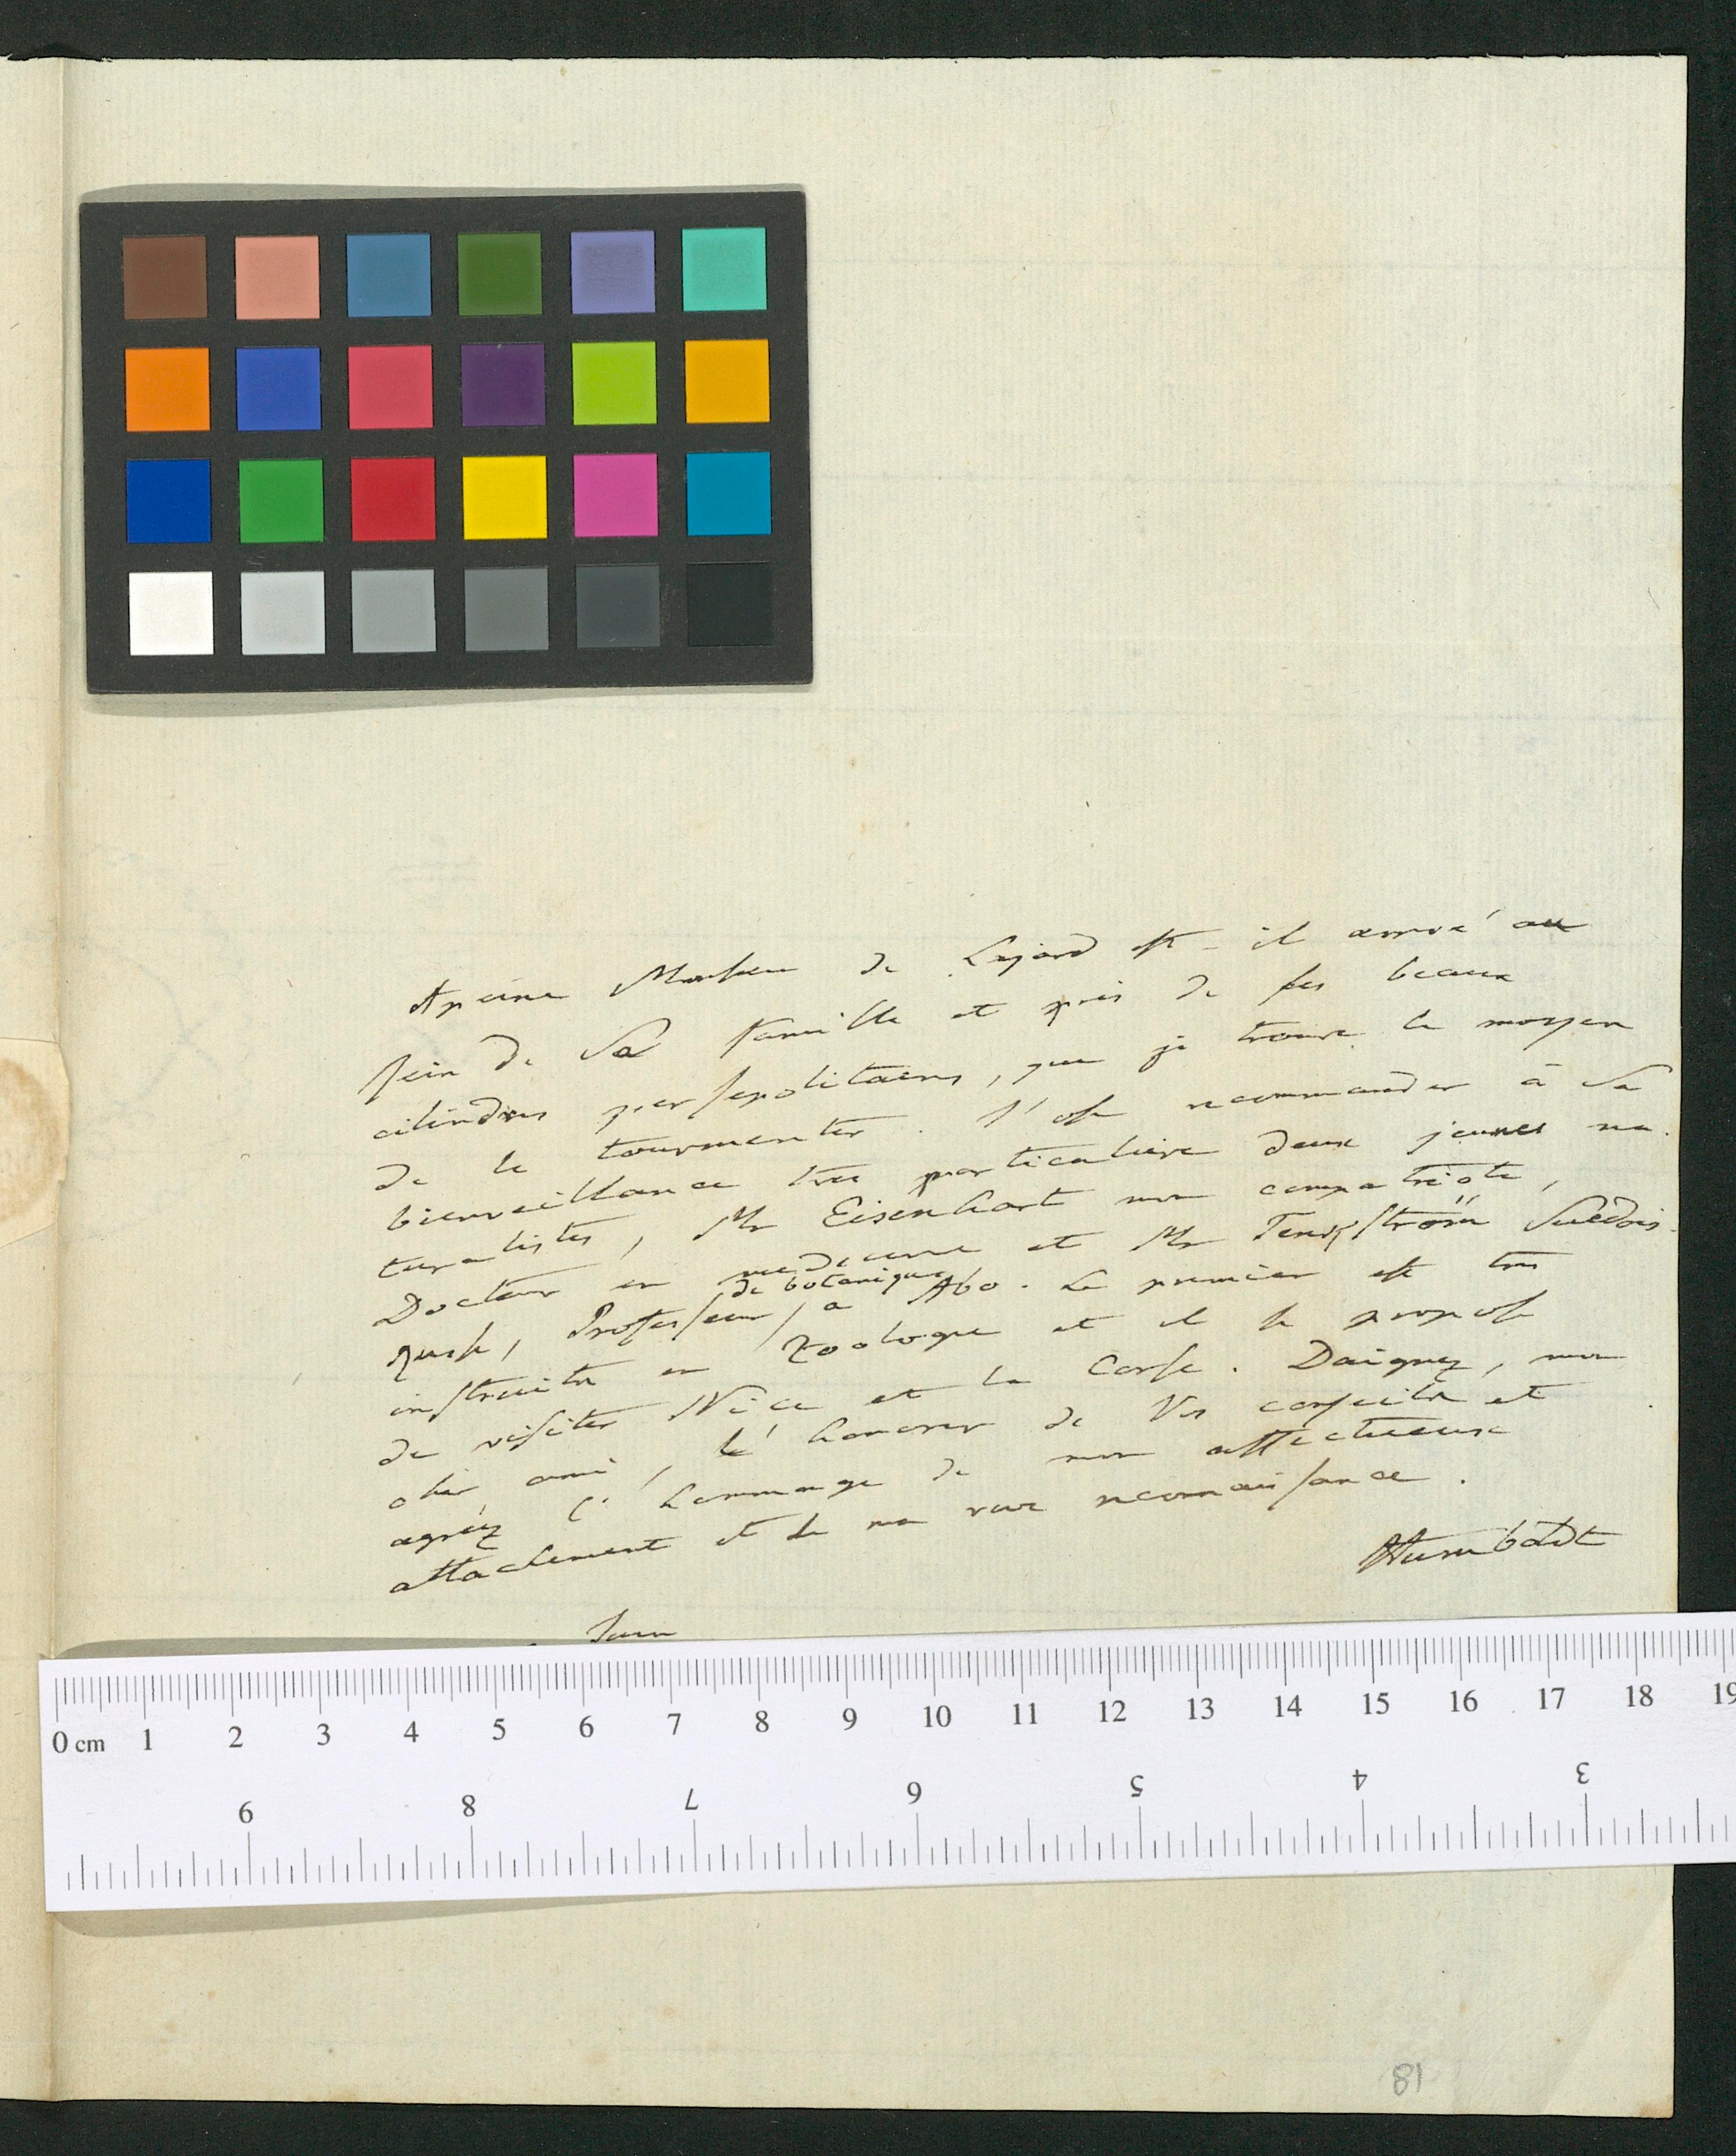 Apeine Monsieur de Lajard est-il arrivé au
sein de Sa famille et près de ses beaux
cilindres persepolitains, que je trouve le moyen
de le tourmenter. J'ose recommander à Sa
bienveillance très particulière deux jeunes na-
turalistes, Mr Eisenhart mon compatriote,
Docteur en medecine et Mr Tengström Suedois-
Russe, Professeur de botanique à Abo. Le premier est très
instruite en Zoologie et il se propose
de visiter Nice et la Corse. Daignez, mon
cher ami, les honorer de Vos conseils et
agréez l'hommage de mon affectueux
attachement et de ma vive reconnaissance.
Humboldt
0 cm 1 2 3 4 5 6 7 8 9 10 11 12 13 14 15 16 17 18 19
9 8 7 6 5 4 3
81